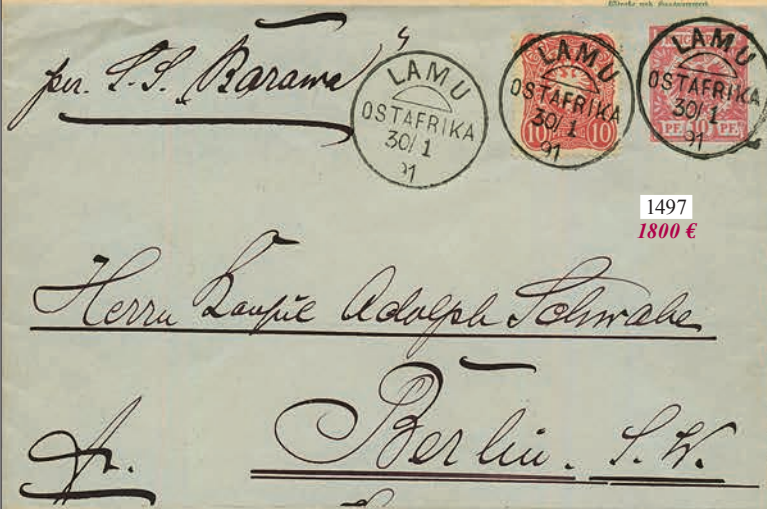 per. S.S. "Barawa"
LAMU
OSTAFRIKA
30/1
91
LAMU
OSTAFRIKA
30/1
91
10 10
LAMU
OSTAFRIKA
30/1
91
PF. 10 PF.
1497
1800 €
Herrn Konsul Adolph Schwabe
Berlin. S.W.
fr.